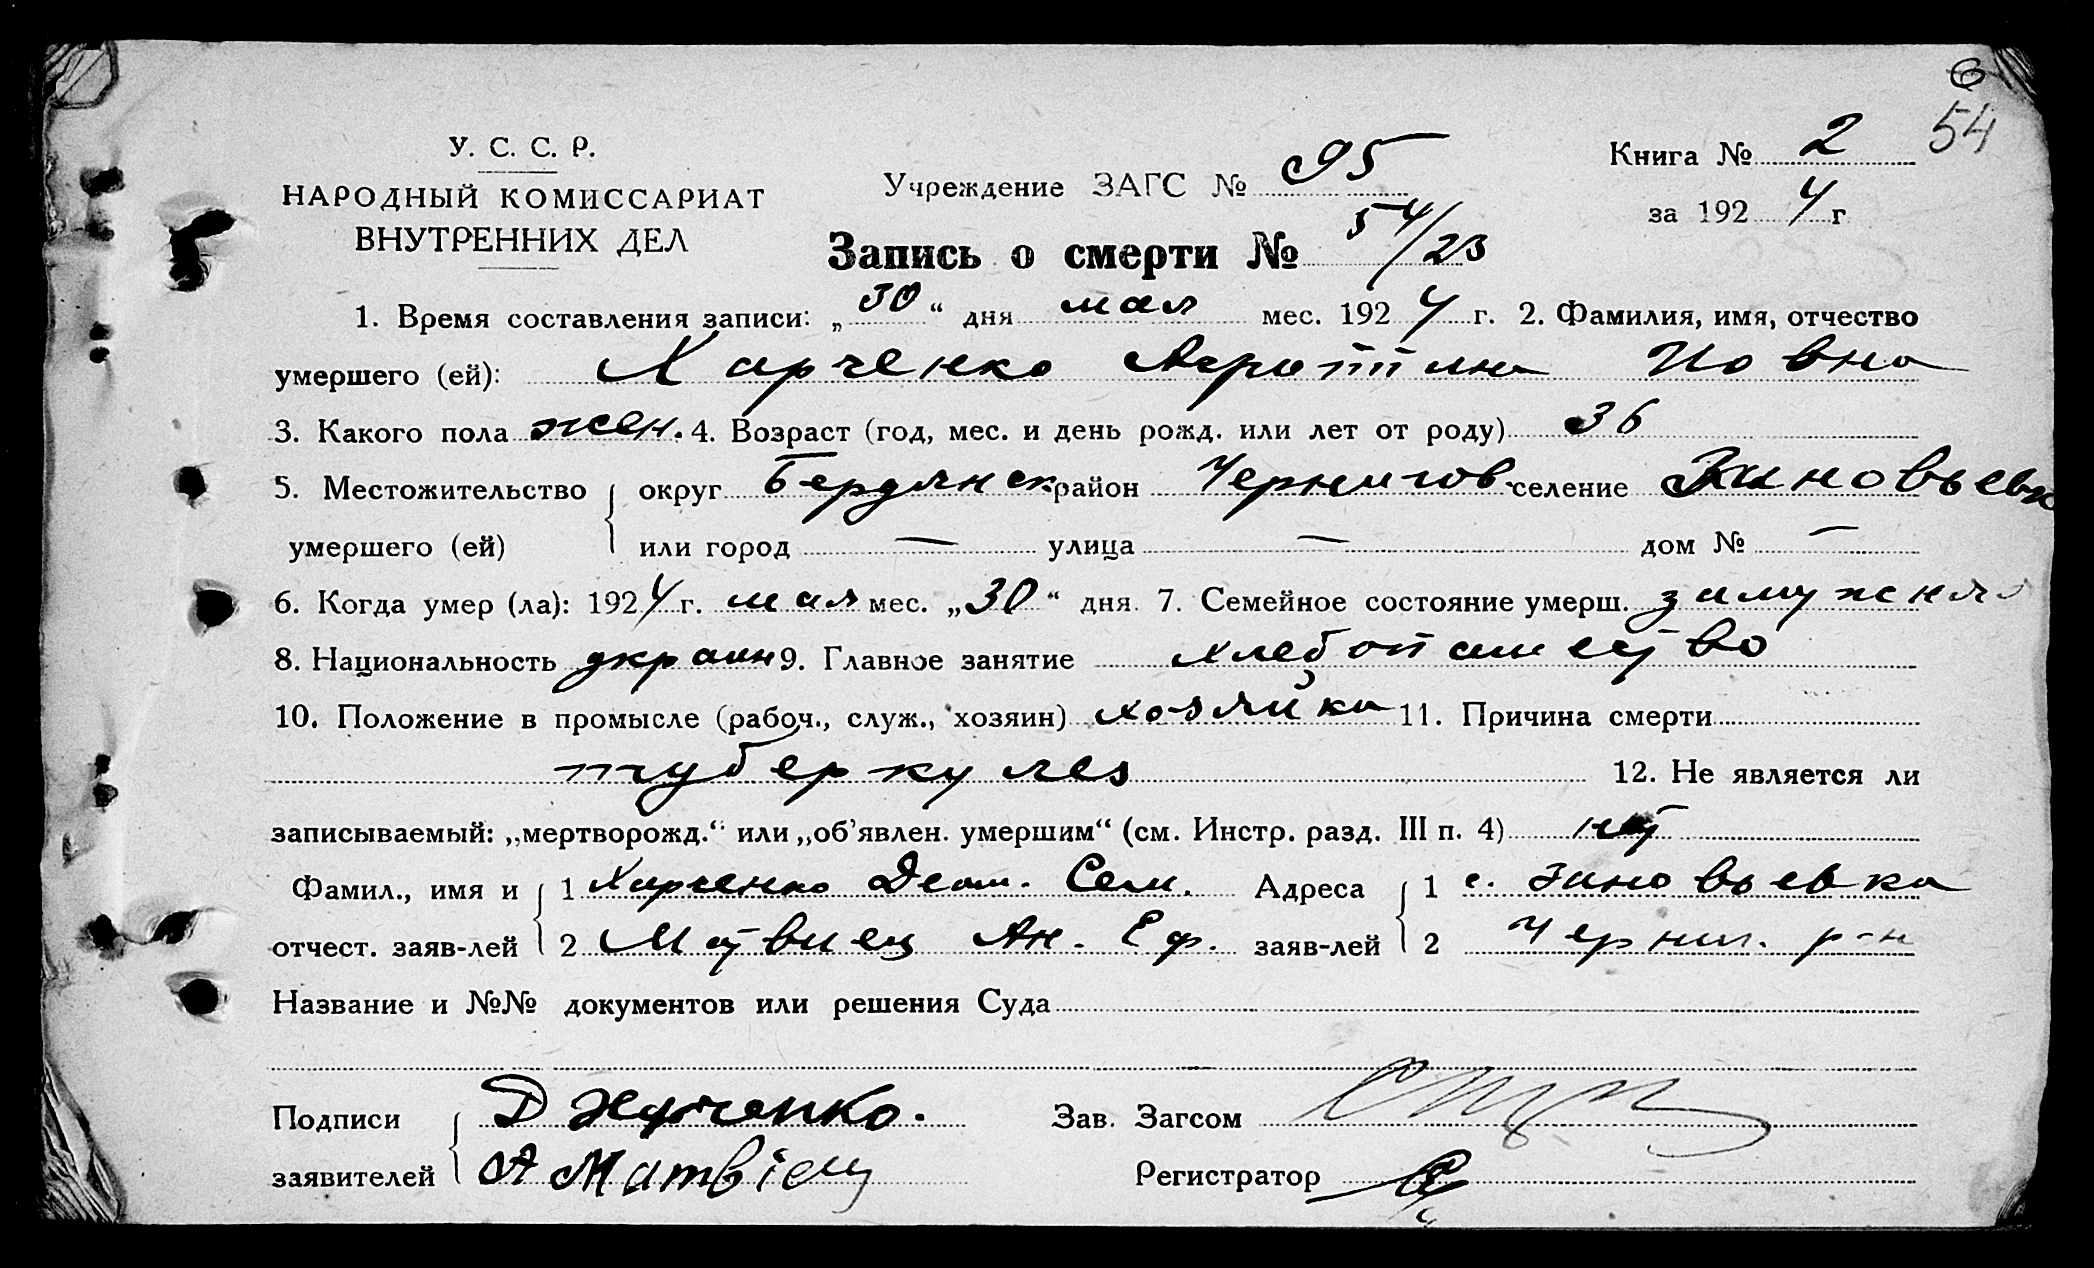 6
54
У. С. С. Р.
НАРОДНЫЙ КОМИССАРИАТ
ВНУТРЕННИХ ДЕЛ
Учреждение ЗАГС № 95
Книга № 2
за 1924 г
Запись о смерти № 54/23
1. Время составления записи: „30“ дня мая мес. 1924 г. 2. Фамилия, имя, отчество
умершего (ей): Харченко Иовна
3. Какого пола жен. 4. Возраст (год, мес. и день рожд. или лет от роду) 36
5. Местожительство округ Бердянск. район Чернигов. селение Зиновьевка
умершего (ей) или город — улица — дом № —
6. Когда умер (ла): 1924 г. мая мес. „30“ дня. 7. Семейное состояние умерш. замужняя
8. Национальность украин 9. Главное занятие хлебопашество
10. Положение в промысле (рабоч., служ., хозяин) хозяйка 11. Причина смерти
туберкулез 12. Не является ли
записываемый: „мертворожд.“ или „об’явлен. умершим“ (см. Инстр. разд. III п. 4) нет
Фамил., имя и 1 Харченко Сем. Адреса 1 с. Зиновьевка
отчест. заяв-лей 2 Матвиец Ан. Еф. заяв-лей 2 Черниг. р-н
Название и №№ документов или решения Суда
Подписи Д Харченко. Зав. Загсом
заявителей А Матвіец Регистратор